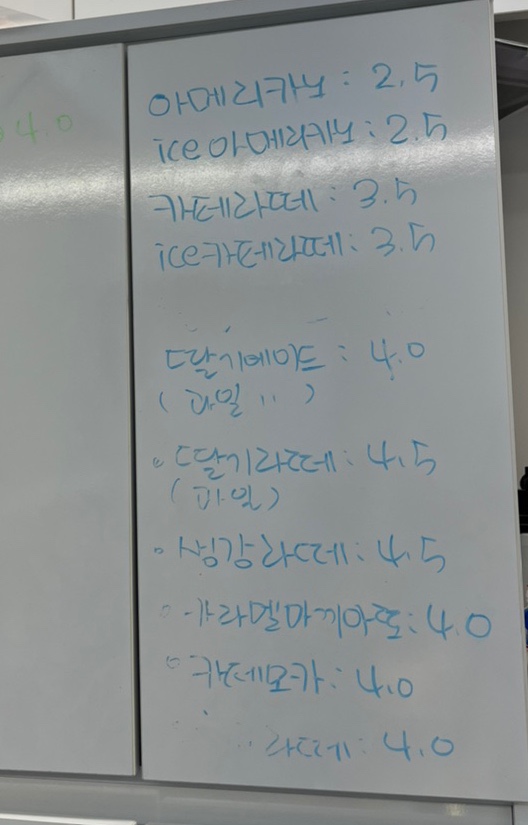 4.0
아메리카노 : 2.5
ice 아메리카노 : 2.5
카페라떼 : 3.5
ice 카페라떼 : 3.5
딸기에이드 : 4.0
( 과일 〃 )
딸기라떼 : 4.5
(과일)
생강라떼 : 4.5
카라멜마끼아또 : 4.0
카페모카 : 4.0
라떼 : 4.0